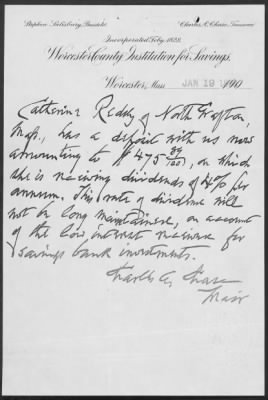 Stephen Salisbury, President. Charles A. Chase, Treasurer.
Incorporated Feby. 1828.
Worcester County Institution for Savings.
Worcester, Mass JAN 19 1900
Catherine Reddy of North Grafton,
Mass., has a deposit with us now
amounting to $475 /100, on which
she is receiving dividends of 4% per
annum. This rate of dividend will
not be long maintained, on account
of the low interest receive for
savings bank investments.
Charles A. Chase
Treas'r